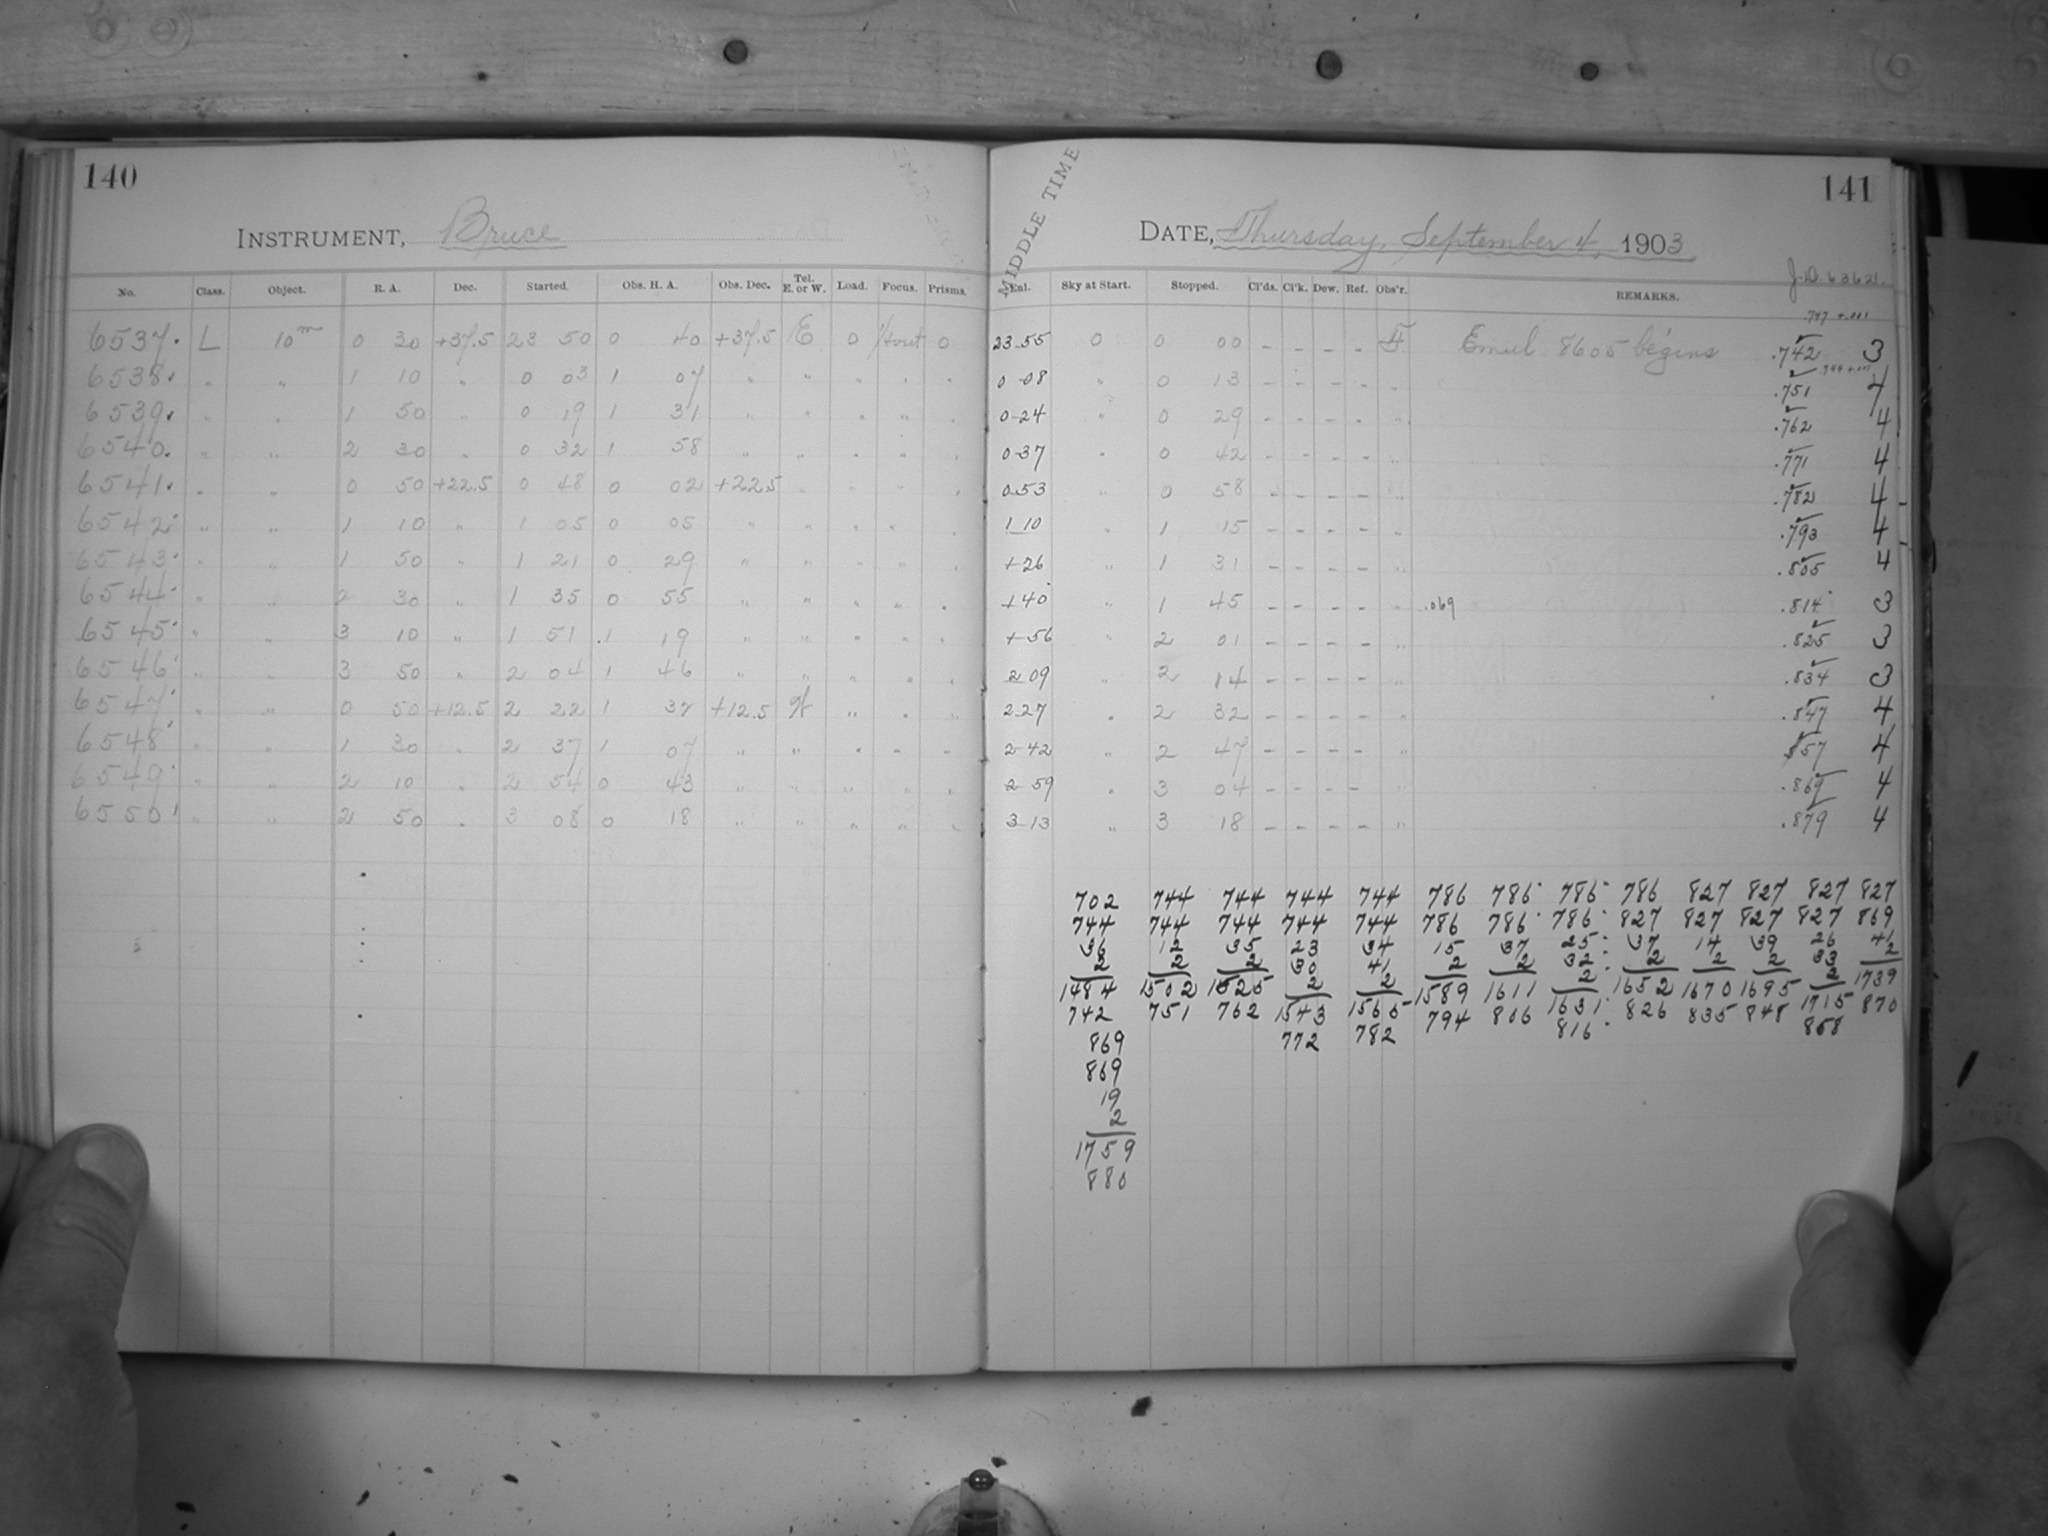 140
INSTRUMENT, Bruce
No. Class. Object. R. A. Dec. Started. Obs. H. A. Obs. Dec. Tel. E. or W. Load. Focus. Prisms.
6537. L 10m 0 30 +37.5 23 50 0 40 +37.5 E 0 0
6538. " " 1 10 " 0 03 1 07 " " " " "
6539. " " 1 50 " 0 19 1 31 " " " " "
6540. " " 2 30 " 0 32 1 58 " " " " "
6541. " " 0 50 +22.5 0 48 0 02 +22.5 " " " "
6542. " " 1 10 " 1 05 0 05 " " " " "
6543. " " 1 50 " 1 21 0 29 " " " " "
6544. " " 2 30 " 1 35 0 55 " " " " "
6545. " " 3 10 " 1 51 1 19 " " " " "
6546. " " 3 50 " 2 04 1 46 " " " " "
6547. " " 0 50 +12.5 2 22 1 32 +12.5 W " " "
6548. " " 1 30 " 2 37 1 07 " " " " "
6549. " " 2 10 " 2 54 0 43 " " " " "
6550. " " 2 50 " 3 08 0 18 " " " " "
141
MIDDLE TIME
DATE, Thursday, September 4, 1903
J.D. 63621.
Enl. Sky at Start. Stopped. Cl'ds. Cl'k. Dew. Ref. Obs'r. REMARKS.
.747 +.001
23 55 0 0 00 - - - - F. Emul 8605 begins .742 3
0 08 " 0 13 - - - - " .751 4
0-24 " 0 29 - - - - " .762 4
0 37 " 0 42 - - - - " .771 4
0.53 " 0 58 - - - - " .782 4
1 10 " 1 15 - - - - " .793 4
1 26 " 1 31 - - - - " .805 4
1 40 " 1 45 - - - - " .069 .814 3
1 56 " 2 01 - - - - " .825 3
2 09 " 2 14 - - - - " .834 3
2 27 " 2 32 - - - - " .847 4
2 42 " 2 47 - - - - " .857 4
2 59 " 3 04 - - - - " .869 4
3 13 " 3 18 - - - - " .879 4
702 744 744 744 744 786 786 786 786 827 827 827 827
744 744 744 744 744 786 786 786 827 827 827 827 869
36 12 35 23 34 15 37 25 37 14 39 26 41
2 2 2 30 41 2 2 32 2 2 2 33 2
1484 1502 1525 2 2 1589 1611 2 1652 1670 1695 2 1739
742 751 762 1543 1565 794 806 1631 826 835 848 1715 870
869 772 782 816 858
869
19
2
1759
880